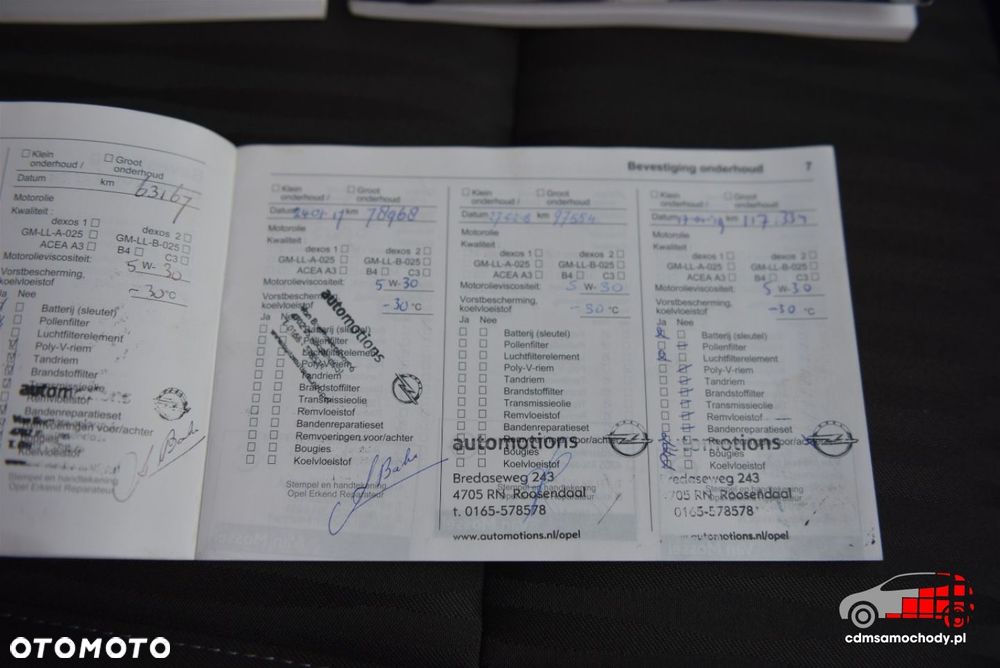 Klein onderhoud /
Groot onderhoud
Datum km 63167
Motorolie
Kwaliteit :
dexos 1 dexos 2
GM-LL-A-025 GM-LL-B-025
ACEA A3 B4 C3
Motorolieviscositeit: 5 W-30
Vorstbescherming, koelvloeistof -30 °C
Ja Nee
Batterij (sleutel)
Pollenfilter
Luchtfilterelement
Poly-V-riem
Tandriem
Brandstoffilter
Transmissieolie
Remvloeistof
Bandenreparatieset
Remvoeringen voor/achter
Bougies
Koelvloeistof
Stempel en handtekening
Opel Erkend Reparateur
Bevestiging onderhoud 7
Klein onderhoud /
Groot onderhoud
Datum km 78968
Motorolie
Kwaliteit
dexos 1 dexos 2
GM-LL-A-025 GM-LL-B-025
ACEA A3 B4 C3
Motorolieviscositeit: 5 W-30
Vorstbescherming, koelvloeistof -30 °C
Ja Nee
Batterij (sleutel)
Pollenfilter
Luchtfilterelement
Poly-V-riem
Tandriem
Brandstoffilter
Transmissieolie
Remvloeistof
Bandenreparatieset
Remvoeringen voor/achter
Bougies
Koelvloeistof
automotions
Stempel en handtekening
Opel Erkend Reparateur
Klein onderhoud /
Groot onderhoud
Datum km
Motorolie
Kwaliteit
dexos 1 dexos 2
GM-LL-A-025 GM-LL-B-025
ACEA A3 B4 C3
Motorolieviscositeit: 5 W-30
Vorstbescherming, koelvloeistof -30 °C
Ja Nee
Batterij (sleutel)
Pollenfilter
Luchtfilterelement
Poly-V-riem
Tandriem
Brandstoffilter
Transmissieolie
Remvloeistof
Bandenreparatieset
automotions
Bougies
Koelvloeistof
Bredaseweg 243
4705 RN Roosendaal
t. 0165-578578
www.automotions.nl/opel
Klein onderhoud /
Groot onderhoud
Datum km 117.334
Motorolie
Kwaliteit
dexos 1 dexos 2
GM-LL-A-025 GM-LL-B-025
ACEA A3 B4 C3
Motorolieviscositeit: 5 W-30
Vorstbescherming, koelvloeistof -30 °C
Ja Nee
Batterij (sleutel)
Pollenfilter
Luchtfilterelement
Poly-V-riem
Tandriem
Brandstoffilter
Transmissieolie
Remvloeistof
Bandenreparatieset
Bougies
Koelvloeistof
redaseweg 243
705 RN Roosendaal
0165-578578
www.automotions.nl/opel
OTOMOTO
cdmsamochody.pl